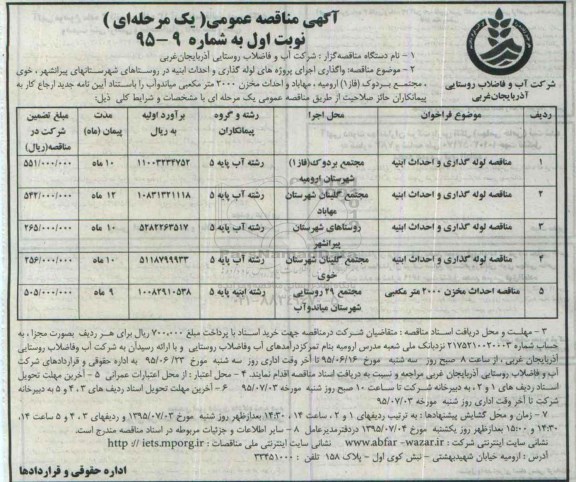 آگهی مناقصه عمومی( یک مرحله‌ای )
نوبت اول به شماره ۹ -۹۵
شرکت آب و فاضلاب روستایی
آذربایجان‌غربی
۱ - نام دستگاه مناقصه‌گزار : شرکت آب و فاضلاب روستایی آذربایجان‌غربی
۲ - موضوع مناقصه: واگذاری اجرای پروژه های لوله گذاری و احداث ابنیه در روستاهای شهرستانهای پیرانشهر ، خوی
، مجتمع بردوک (فاز۱) ارومیه ، مهاباد و احداث مخزن ۲۰۰۰ متر مکعبی میاندوآب را باستناد آیین نامه جدید ارجاع کار به
پیمانکاران حائز صلاحیت از طریق مناقصه عمومی یک مرحله ای با مشخصات و شرایط کلی ذیل:
ردیف | موضوع فراخوان | محل اجرا | رشته و گروه پیمانکاران | برآورد اولیه به ریال | مدت پیمان (ماه) | مبلغ تضمین شرکت در مناقصه(ریال)
۱ | مناقصه لوله گذاری و احداث ابنیه | مجتمع بردوک(فاز۱) شهرستان ارومیه | رشته آب پایه ۵ | ۱۱۰۰۳۲۳۴۷۵۲ | ۱۰ ماه | ۵۵۱/۰۰۰/۰۰۰
۲ | مناقصه لوله گذاری و احداث ابنیه | مجتمع گلینان شهرستان مهاباد | رشته آب پایه ۵ | ۱۰۸۳۱۳۲۱۱۱۸ | ۱۲ ماه | ۵۴۲/۰۰۰/۰۰۰
۳ | مناقصه لوله گذاری و احداث ابنیه | روستاهای شهرستان پیرانشهر | رشته آب پایه ۵ | ۵۲۸۲۲۶۳۵۱۷ | ۱۰ ماه | ۲۶۵/۰۰۰/۰۰۰
۴ | مناقصه لوله گذاری و احداث ابنیه | مجتمع گلینان شهرستان خوی | رشته آب پایه ۵ | ۵۱۱۸۷۹۹۹۳۳ | ۱۰ ماه | ۲۵۶/۰۰۰/۰۰۰
۵ | مناقصه احداث مخزن ۲۰۰۰ متر مکعبی | مجتمع ۲۹ روستایی شهرستان میاندوآب | رشته ابنیه پایه ۵ | ۱۰۰۸۲۹۱۰۵۳۸ | ۹ ماه | ۵۰۵/۰۰۰/۰۰۰
۳ - مهلت و محل دریافت اسناد مناقصه : متقاضیان شرکت درمناقصه جهت خرید اسناد با پرداخت مبلغ ۷۰۰/۰۰۰ ریال برای هر ردیف بصورت مجزا، به
حساب شماره ۲۱۷۵۲۱۱۰۰۲۰۰۳ نزدبانک ملی شعبه مدرس ارومیه بنام تمرکزدرآمدهای آب وفاضلاب روستایی و با ارائه رسیدان به شرکت آب وفاضلاب روستایی
آذربایجان غربی ، از ساعت ۸ صبح روز سه شنبه مورخ ۹۵/۰۶/۱۶ تا آخر وقت اداری روز سه شنبه مورخ ۹۵/۰۶/۲۳ به اداره حقوقی و قراردادهای شرکت
آب و فاضلاب روستایی آذربایجان غربی مراجعه و نسبت به دریافت اسناد مناقصه اقدام نمایند. ۴ - محل اعتبار: از محل اعتبارات عمرانی ۵ - آخرین مهلت تحویل
اسناد ردیف های ۱ و ۲، به دبیرخانه شرکت تا ساعت ۱۰ صبح روز شنبه مورخه ۹۵/۰۷/۰۳ ۶ - آخرین مهلت تحویل اسناد ردیف های ۳، ۴ و ۵ به دبیرخانه
شرکت تا آخر وقت اداری روز شنبه مورخه ۹۵/۰۷/۰۳
۷ - زمان و محل گشایش پیشنهادها : به ترتیب ردیفهای ۱ و ۲، ساعت ۱۴، ۱۴:۳۰ بعدازظهر روز شنبه مورخ ۱۳۹۵/۰۷/۰۳ و ردیفهای ۳، ۴ و ۵ ساعت ۱۴،
۱۴:۳۰ و ۱۵:۰۰ بعدازظهر روز یکشنبه مورخ ۱۳۹۵/۰۷/۰۴ دردفترمدیرعامل ۸ - سایر اطلاعات و جزئیات مربوطه در اسناد مناقصه مندرج است.
نشانی سایت اینترنتی شرکت : www.abfar -wazar.ir نشانی سایت اینترنتی ملی مناقصات : http :// iets.mporg.ir
آدرس : ارومیه خیابان شهیدبهشتی - نبش کوی اول - پلاک ۱۵۸ تلفن : ۳۳۴۵۱۰۰۰
اداره حقوقی و قراردادها